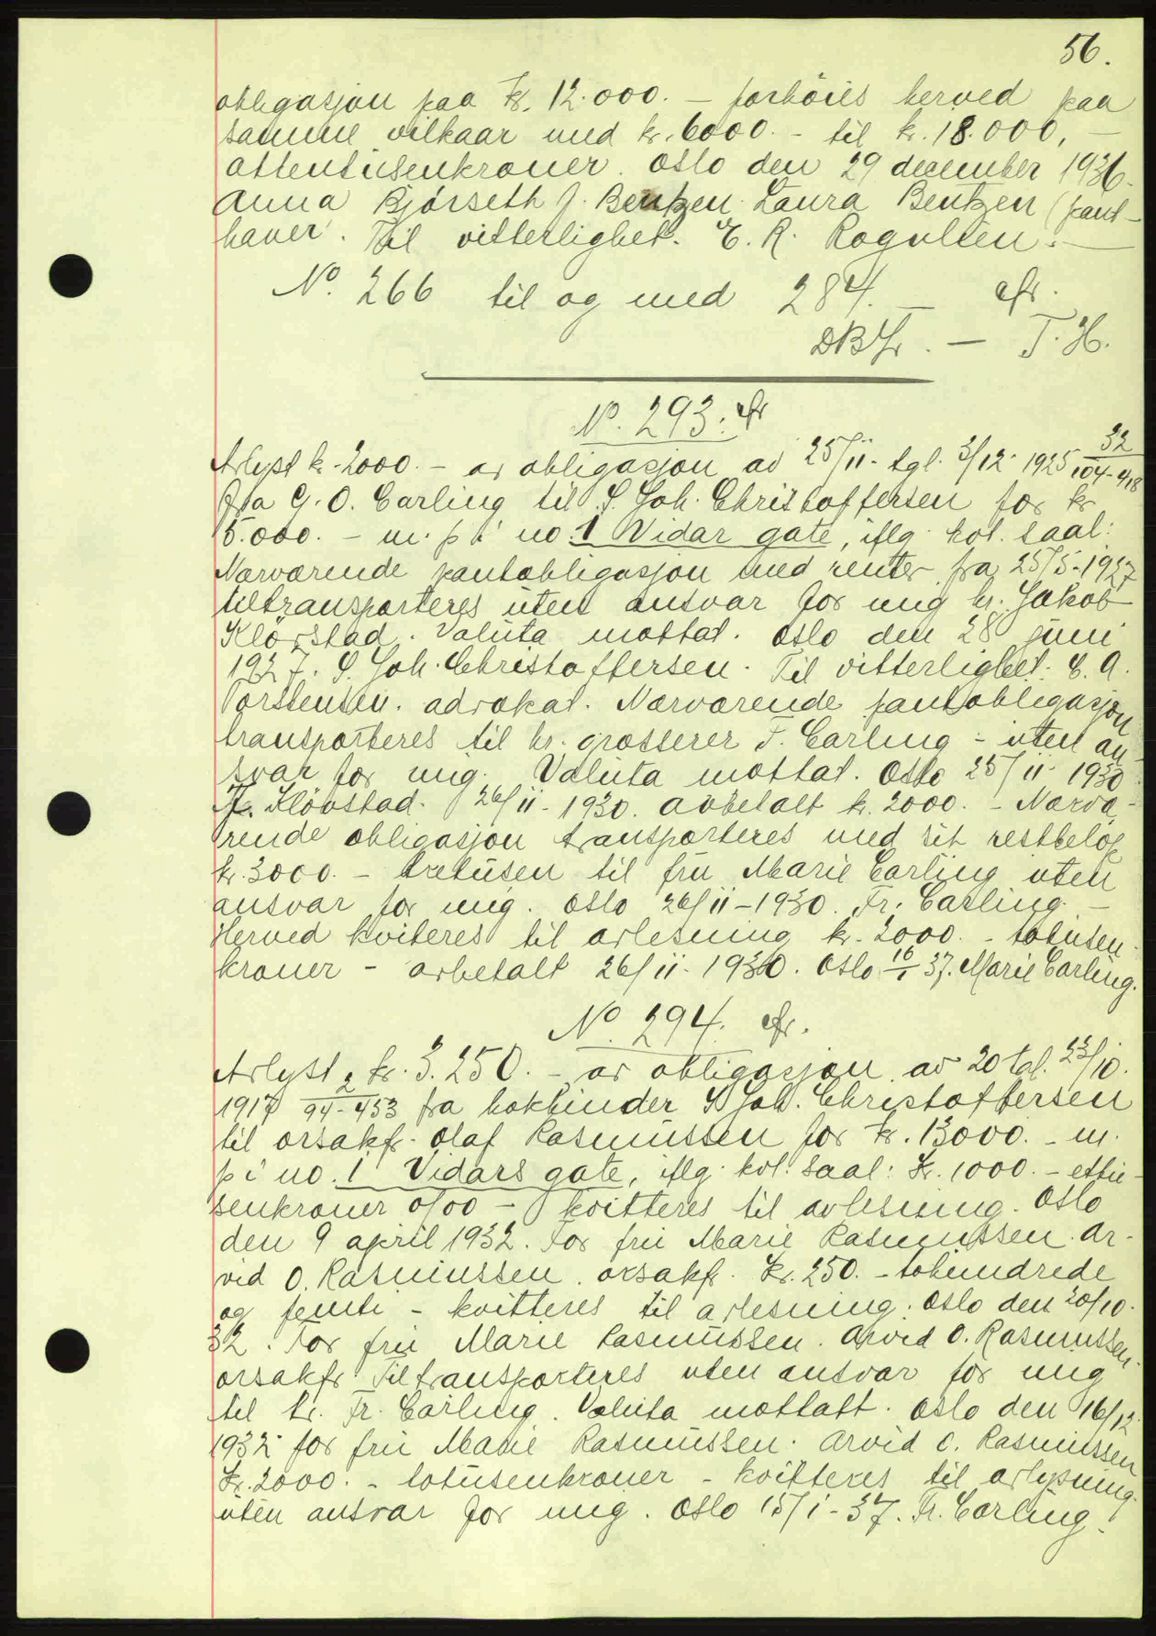 56.
obligasjon paa kr. 12.000. – forhöies herved paa
samme vilkaar med kr. 6000. – til kr. 18.000, –
attentusenkroner. Oslo den 29 december 1936.
Anna Bjørseth J. Bentzen Laura Bentzen (pant-
haver. Til vitterlighet. E. R. Rognlien. –
No. 266 til og med 284. – efr.
DBfr. – T. H.
No. 293. efr
Avlyst kr. 2000. – av obligasjon av 25/11- tgl. 3/12- 1925 32/104-418
fra G. O. Carling til S. Joh. Christoffersen for kr
5.000. – m. p. i no. 1 Vidar gate, iflg. kvl. saal:
Nærværende pantobligasjon med renter fra 25/5-1927
tiltransporteres uten ansvar for mig hr. Jakob
Klövstad. Valuta mottat. Oslo den 28 juni
1927. S. Joh. Christoffersen. Til vitterlighet. E. A.
Torstensen. advokat. Nærværende pantobligasjon
transporteres til hr. grosserer F. Carling – uten an-
svar for mig. Valuta mottat. Oslo 25/11- 1930
J. Klövstad. 26/11- 1930. avbetalt kr. 2000. – Nærvæ-
rende obligasjon transporteres med sit restbelöp
kr. 3000. – tretusen til fru Marie Carling uten
ansvar for mig. Oslo 26/11-1930. Fr. Carling –
Herved kviteres til avlesning kr. 2000. – totusen-
kroner – avbetalt 26/11- 1930. Oslo 16/1 37. Marie Carling.
No. 294. efr.
Avlyst kr. 3.250. – av obligasjon av 20 tgl. 23/10.
1917 2/94-453 fra bokbinder S Joh. Christoffersen
til orsakf. Olaf Rasmussen for kr. 13000. – m.
p i no. 1 Vidars gate, iflg. kvl. saal: Kr. 1000. – ettu-
senkroner o/oo – kvitteres til avlesning. Oslo
den 9 april 1932. For fru Marie Rasmussen. Ar-
vid O. Rasmussen. orsakf. Kr. 250. – tohundrede
og femti – kvitteres til avlesning. Oslo den 20/10.
32. For fru Marie Rasmussen. Arvid O. Rasmussen.
orsakfr. Tiltransporteres uten ansvar for mig
til hr. Fr. Carling. Valuta mottatt. Oslo den 16/12.
1932 for fru Marie Rasmussen. Arvid O. Rasmussen
Kr. 2000. – totusenkroner – kvitteres til avlysning.
uten ansvar for mig. Oslo 15/1-37. Fr. Carling.